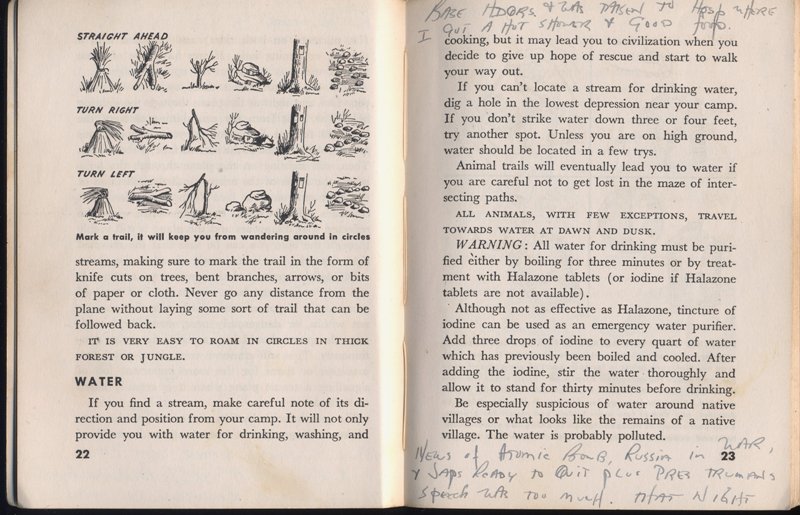 STRAIGHT AHEAD
TURN RIGHT
TURN LEFT
Mark a trail, it will keep you from wandering around in circles
streams, making sure to mark the trail in the form of
knife cuts on trees, bent branches, arrows, or bits
of paper or cloth. Never go any distance from the
plane without laying some sort of trail that can be
followed back.
IT IS VERY EASY TO ROAM IN CIRCLES IN THICK
FOREST OR JUNGLE.
WATER
If you find a stream, make careful note of its di-
rection and position from your camp. It will not only
provide you with water for drinking, washing, and
22
BASE HDQRS & WAS TAKEN TO HOSP WHERE
I GOT A HOT SHOWER & GOOD food.
cooking, but it may lead you to civilization when you
decide to give up hope of rescue and start to walk
your way out.
If you can't locate a stream for drinking water,
dig a hole in the lowest depression near your camp.
If you don't strike water down three or four feet,
try another spot. Unless you are on high ground,
water should be located in a few trys.
Animal trails will eventually lead you to water if
you are careful not to get lost in the maze of inter-
secting paths.
ALL ANIMALS, WITH FEW EXCEPTIONS, TRAVEL
TOWARDS WATER AT DAWN AND DUSK.
WARNING: All water for drinking must be puri-
fied either by boiling for three minutes or by treat-
ment with Halazone tablets (or iodine if Halazone
tablets are not available).
Although not as effective as Halazone, tincture of
iodine can be used as an emergency water purifier.
Add three drops of iodine to every quart of water
which has previously been boiled and cooled. After
adding the iodine, stir the water thoroughly and
allow it to stand for thirty minutes before drinking.
Be especially suspicious of water around native
villages or what looks like the remains of a native
village. The water is probably polluted.
23
News of Atomic Bomb, Russia in WAR,
& JAPS READY TO QUIT plus PRES TRUMANS
Speech WAS TOO MUCH. THAT NIGHT